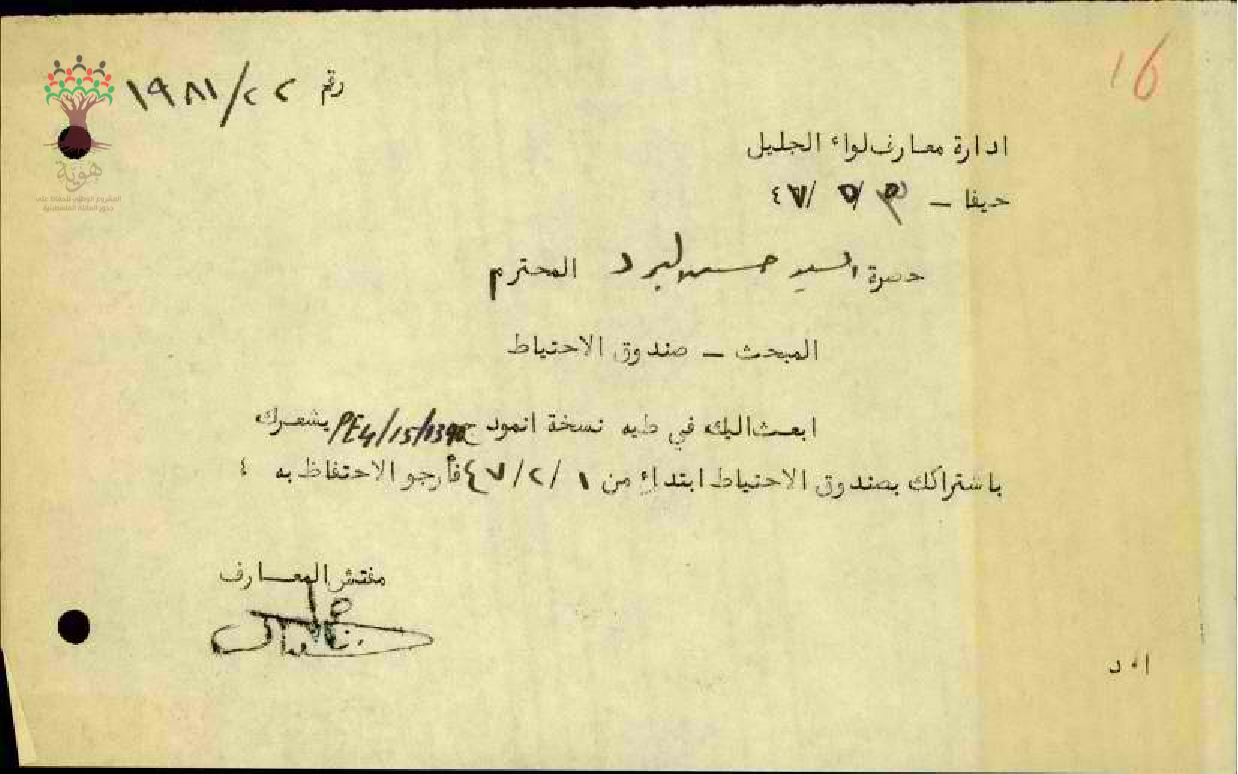 16
رقم ٢٢/١٩٨١
هوية
المشروع الوطني للحفاظ على
جذور العائلة الفلسطينية
ادارة معارف لواء الجليل
حيفا - ٤٧/٥/٣
حضرة السيد حسن لبرد المحترم
المبحث - صندوق الاحتياط
ابعث اليك في طيه نسخة انموذج PE4/15/1398 يشعرك
باشتراكك بصندوق الاحتياط ابتداء من ٤٧/٢/١ فأرجو الاحتفاظ به ؛
مفتش المعارف
ا٠د